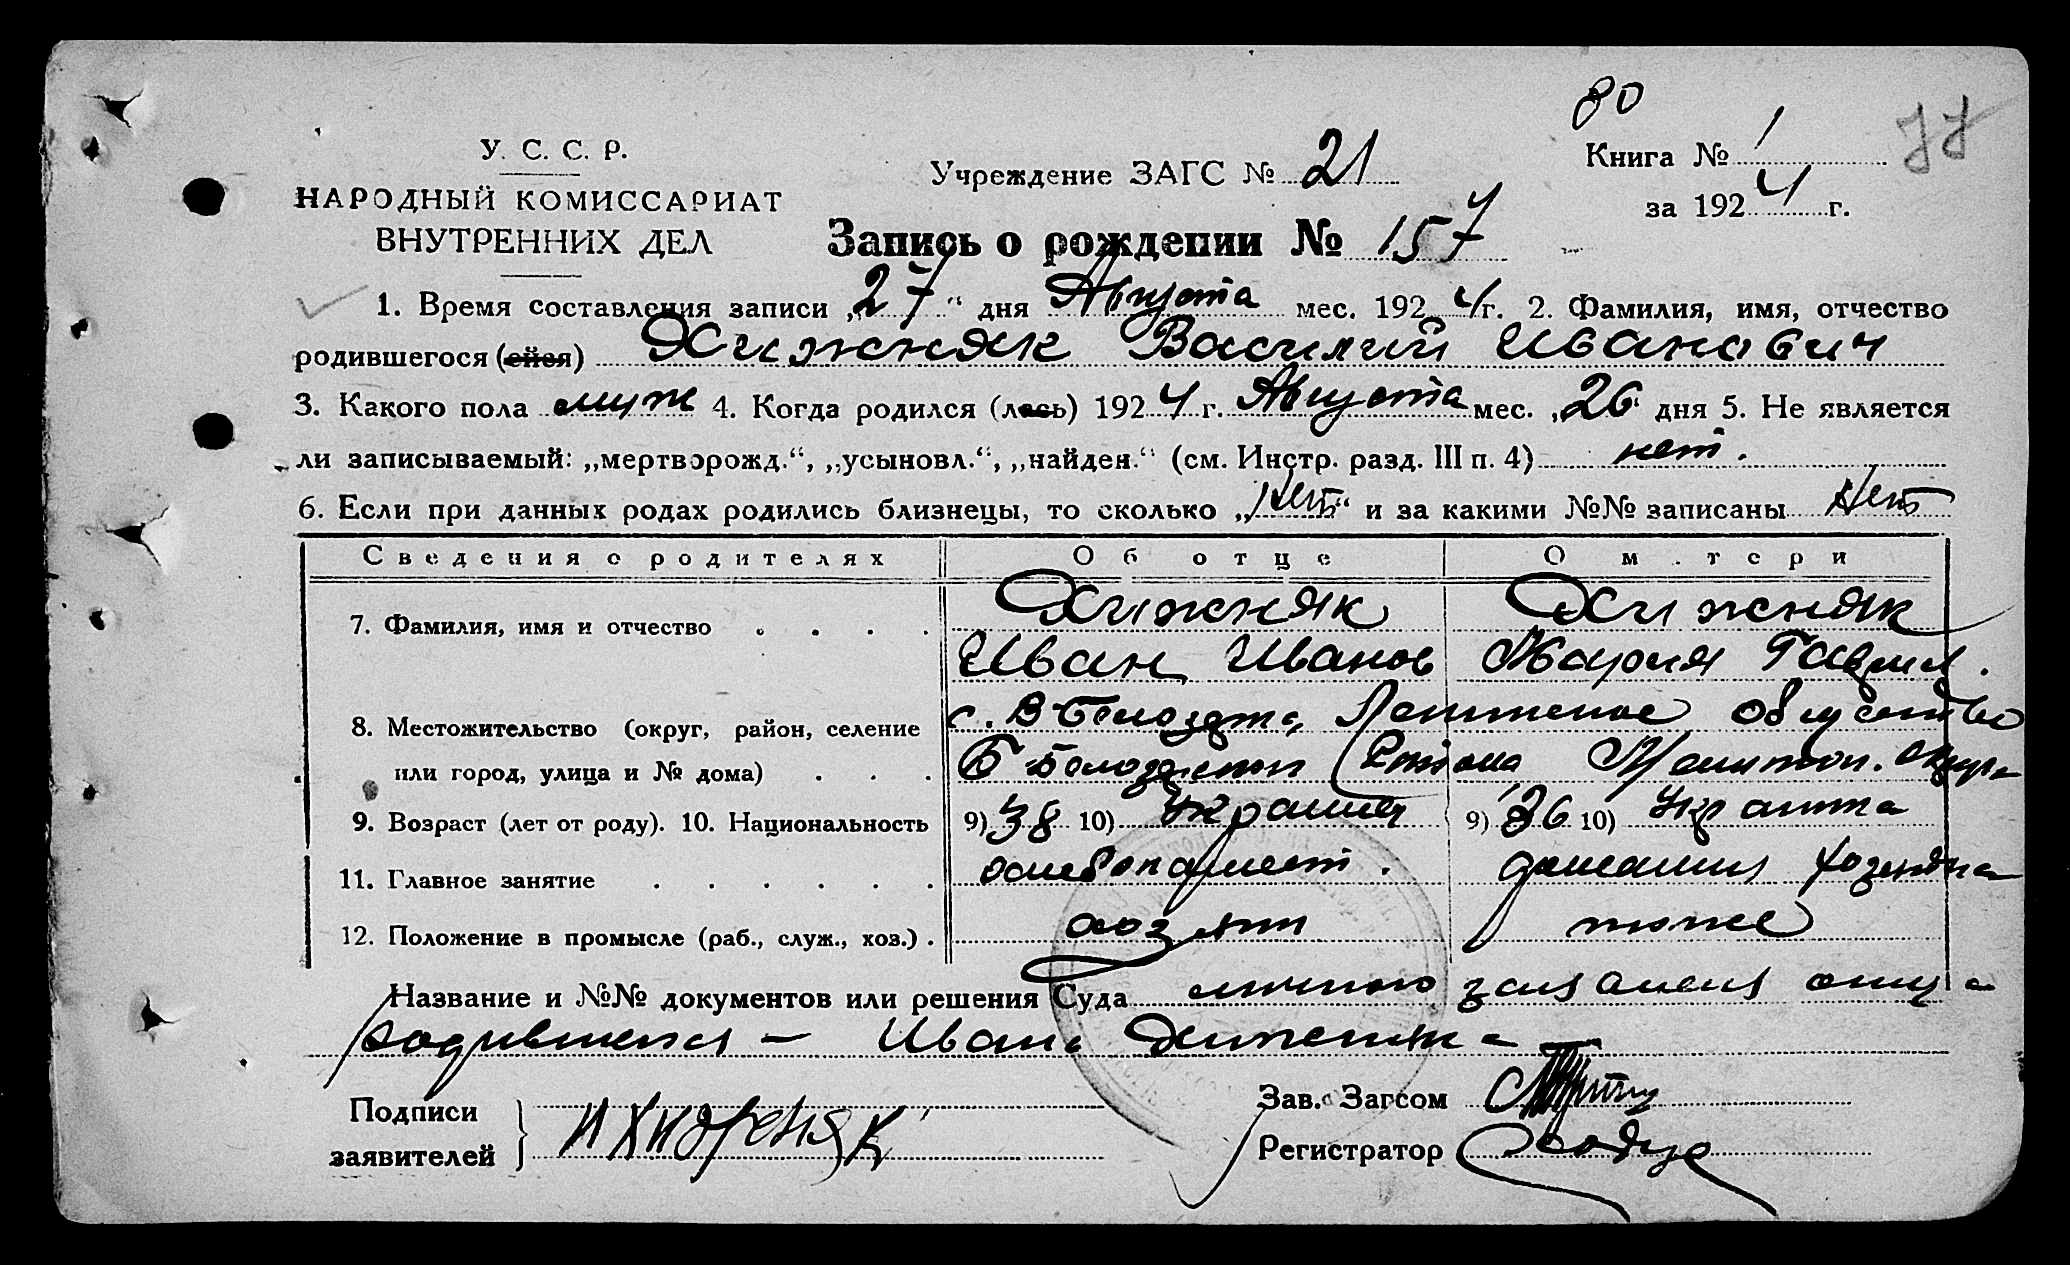 80
77
У. С. С. Р.
НАРОДНЫЙ КОМИССАРИАТ
ВНУТРЕННИХ ДЕЛ
Учреждение ЗАГС № 21
Книга № 1
за 1924 г.
Запись о рождении № 157
1. Время составления записи „27“ дня Августа мес. 1924 г. 2. Фамилия, имя, отчество
родившегося (ейся) Хижняк Василий Иванович
3. Какого пола муж 4. Когда родился (лась) 1924 г. Августа мес. „26 дня 5. Не является
ли записываемый: „мертворожд.“, „усыновл.“, „найден.“ (см. Инстр. разд. III п. 4) нет.
6. Если при данных родах родились близнецы, то сколько „нет“ и за какими №№ записаны нет
Сведения о родителях Об отце О м.тери
7. Фамилия, имя и отчество Хижняк Хижняк
Иван Иванов Мария Гаврил.
8. Местожительство (округ, район, селение с. В-Белозерка,
или город, улица и № дома) Б-Белозерский Района Мелитоп. округа
9. Возраст (лет от роду). 10. Национальность 9) 38 10) Украинец 9) 36 10) Украинка
11. Главное занятие хлебопашест. домашняя хозяйка
12. Положение в промысле (раб., служ., хоз.) хозяин тоже
Название и №№ документов или решения Суда личного заявления отца
родившегося — Ивана Хижняка
Подписи
заявителей И Хижреняк
Зав. Загсом
Регистратор